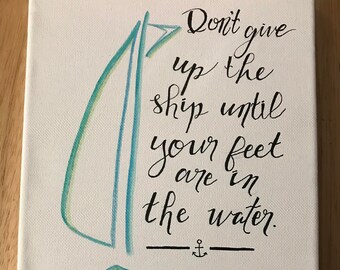 Don't give
up the
ship until
your feet
are in
the water.